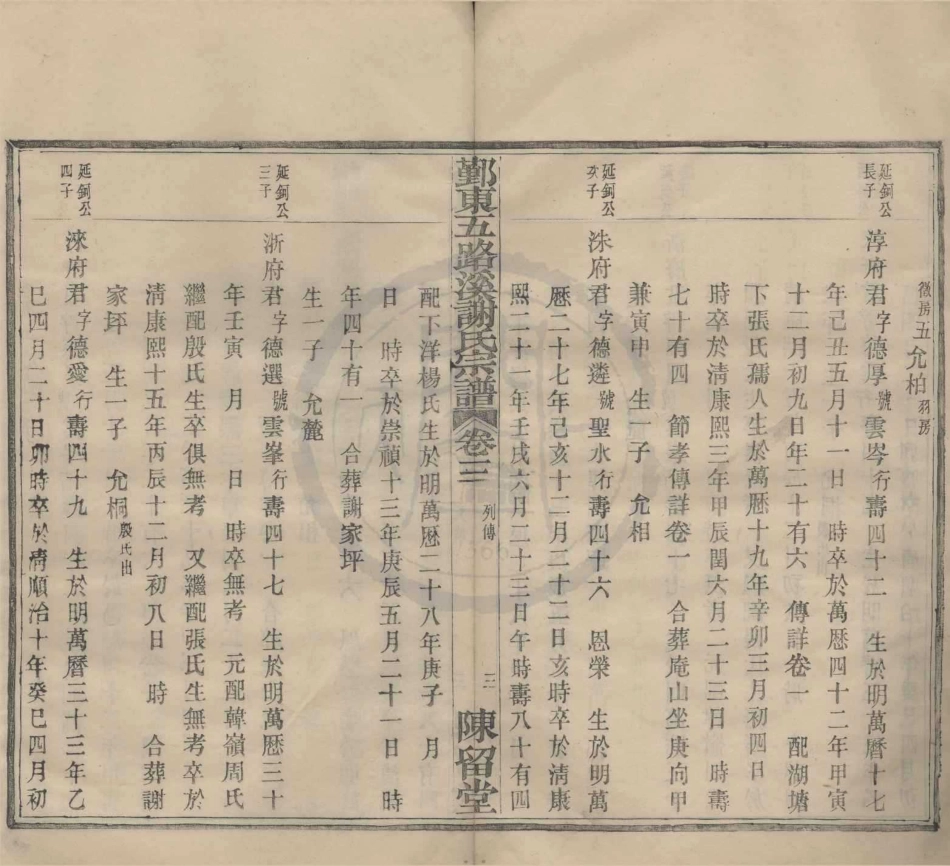 徵房五允柏羽房
延錭公長子
淳府君字德厚號雲岑行壽四十二　生於明萬曆十七
年己丑五月十一日　時卒於萬歷四十二年甲寅
十二月初九日年二十有六　傳詳卷一　配湖塘
下張氏孺人生於萬歷十九年辛卯三月初四日
時卒於清康熙三年甲辰閏六月二十三日　時壽
七十有四　節孝傳詳卷一　合葬庵山坐庚向甲
兼寅申　生一子　允相
延錭公次子
洙府君字德遴號聖水行壽四十六　恩榮　生於明萬
歷二十七年己亥十二月二十二日亥時卒於清康
熙二十一年壬戌六月二十三日午時壽八十有四
鄞東五路溪謝氏宗譜　卷三　列傳　三　陳留堂
配下洋楊氏生於明萬歷二十八年庚子　月
日　時卒於崇禎十三年庚辰五月二十一日　時
年四十有一　合葬謝家坪
生一子　允麓
延錭公三子
浙府君字德選號雲峯行壽四十七　生於明萬歷三十
年壬寅　月　日　時卒無考　元配韓嶺周氏
繼配殷氏生卒俱無考　又繼配張氏生無考卒於
清康熙十五年丙辰十二月初八日　時　合葬謝
家坪　生一子　允桐殷氏出
延錭公四子
淶府君字德愛行壽四十九　生於明萬曆三十三年乙
巳四月二十日卯時卒於清順治十年癸巳四月初